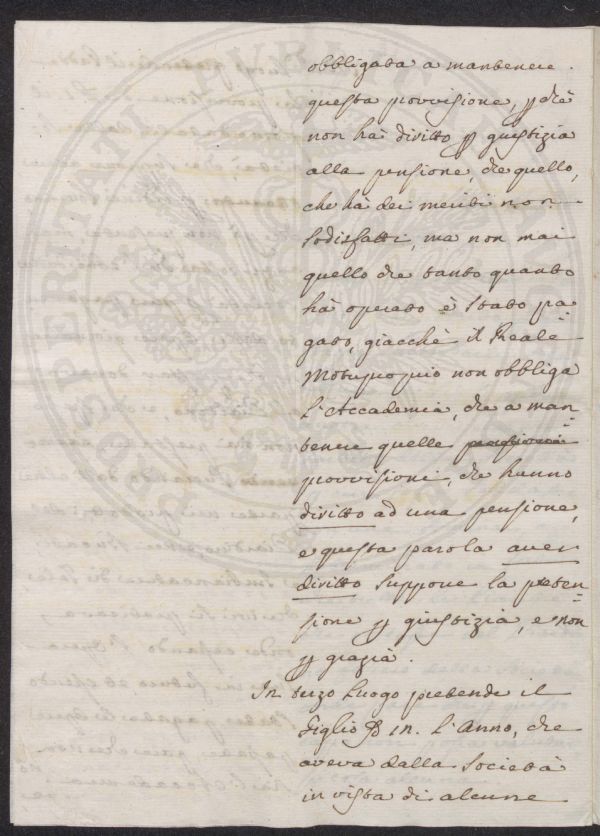 obbligata a mantenere
questa provvisione, p chè
non hà diritto p giustizia
alla pensione, che quello,
che hà dei meriti non
sodisfatti, ma non mai
quello che tanto quanto
hà operato è stato pa=
gato, giacchè il Reale
Motuproprio non obbliga
L'Accademia, che a man=
tenere quelle pensioni
provvisioni, che hanno
diritto ad una pensione,
e questa parola aver
diritto suppone la preten=
sione p giustizia, e non
p grazia.
In terzo luogo pretende il
Figlio in. L'Anno, che
aveva dalla Società
in vista di alcune
PROSPERITATI PUBLICAE AUGENDAE